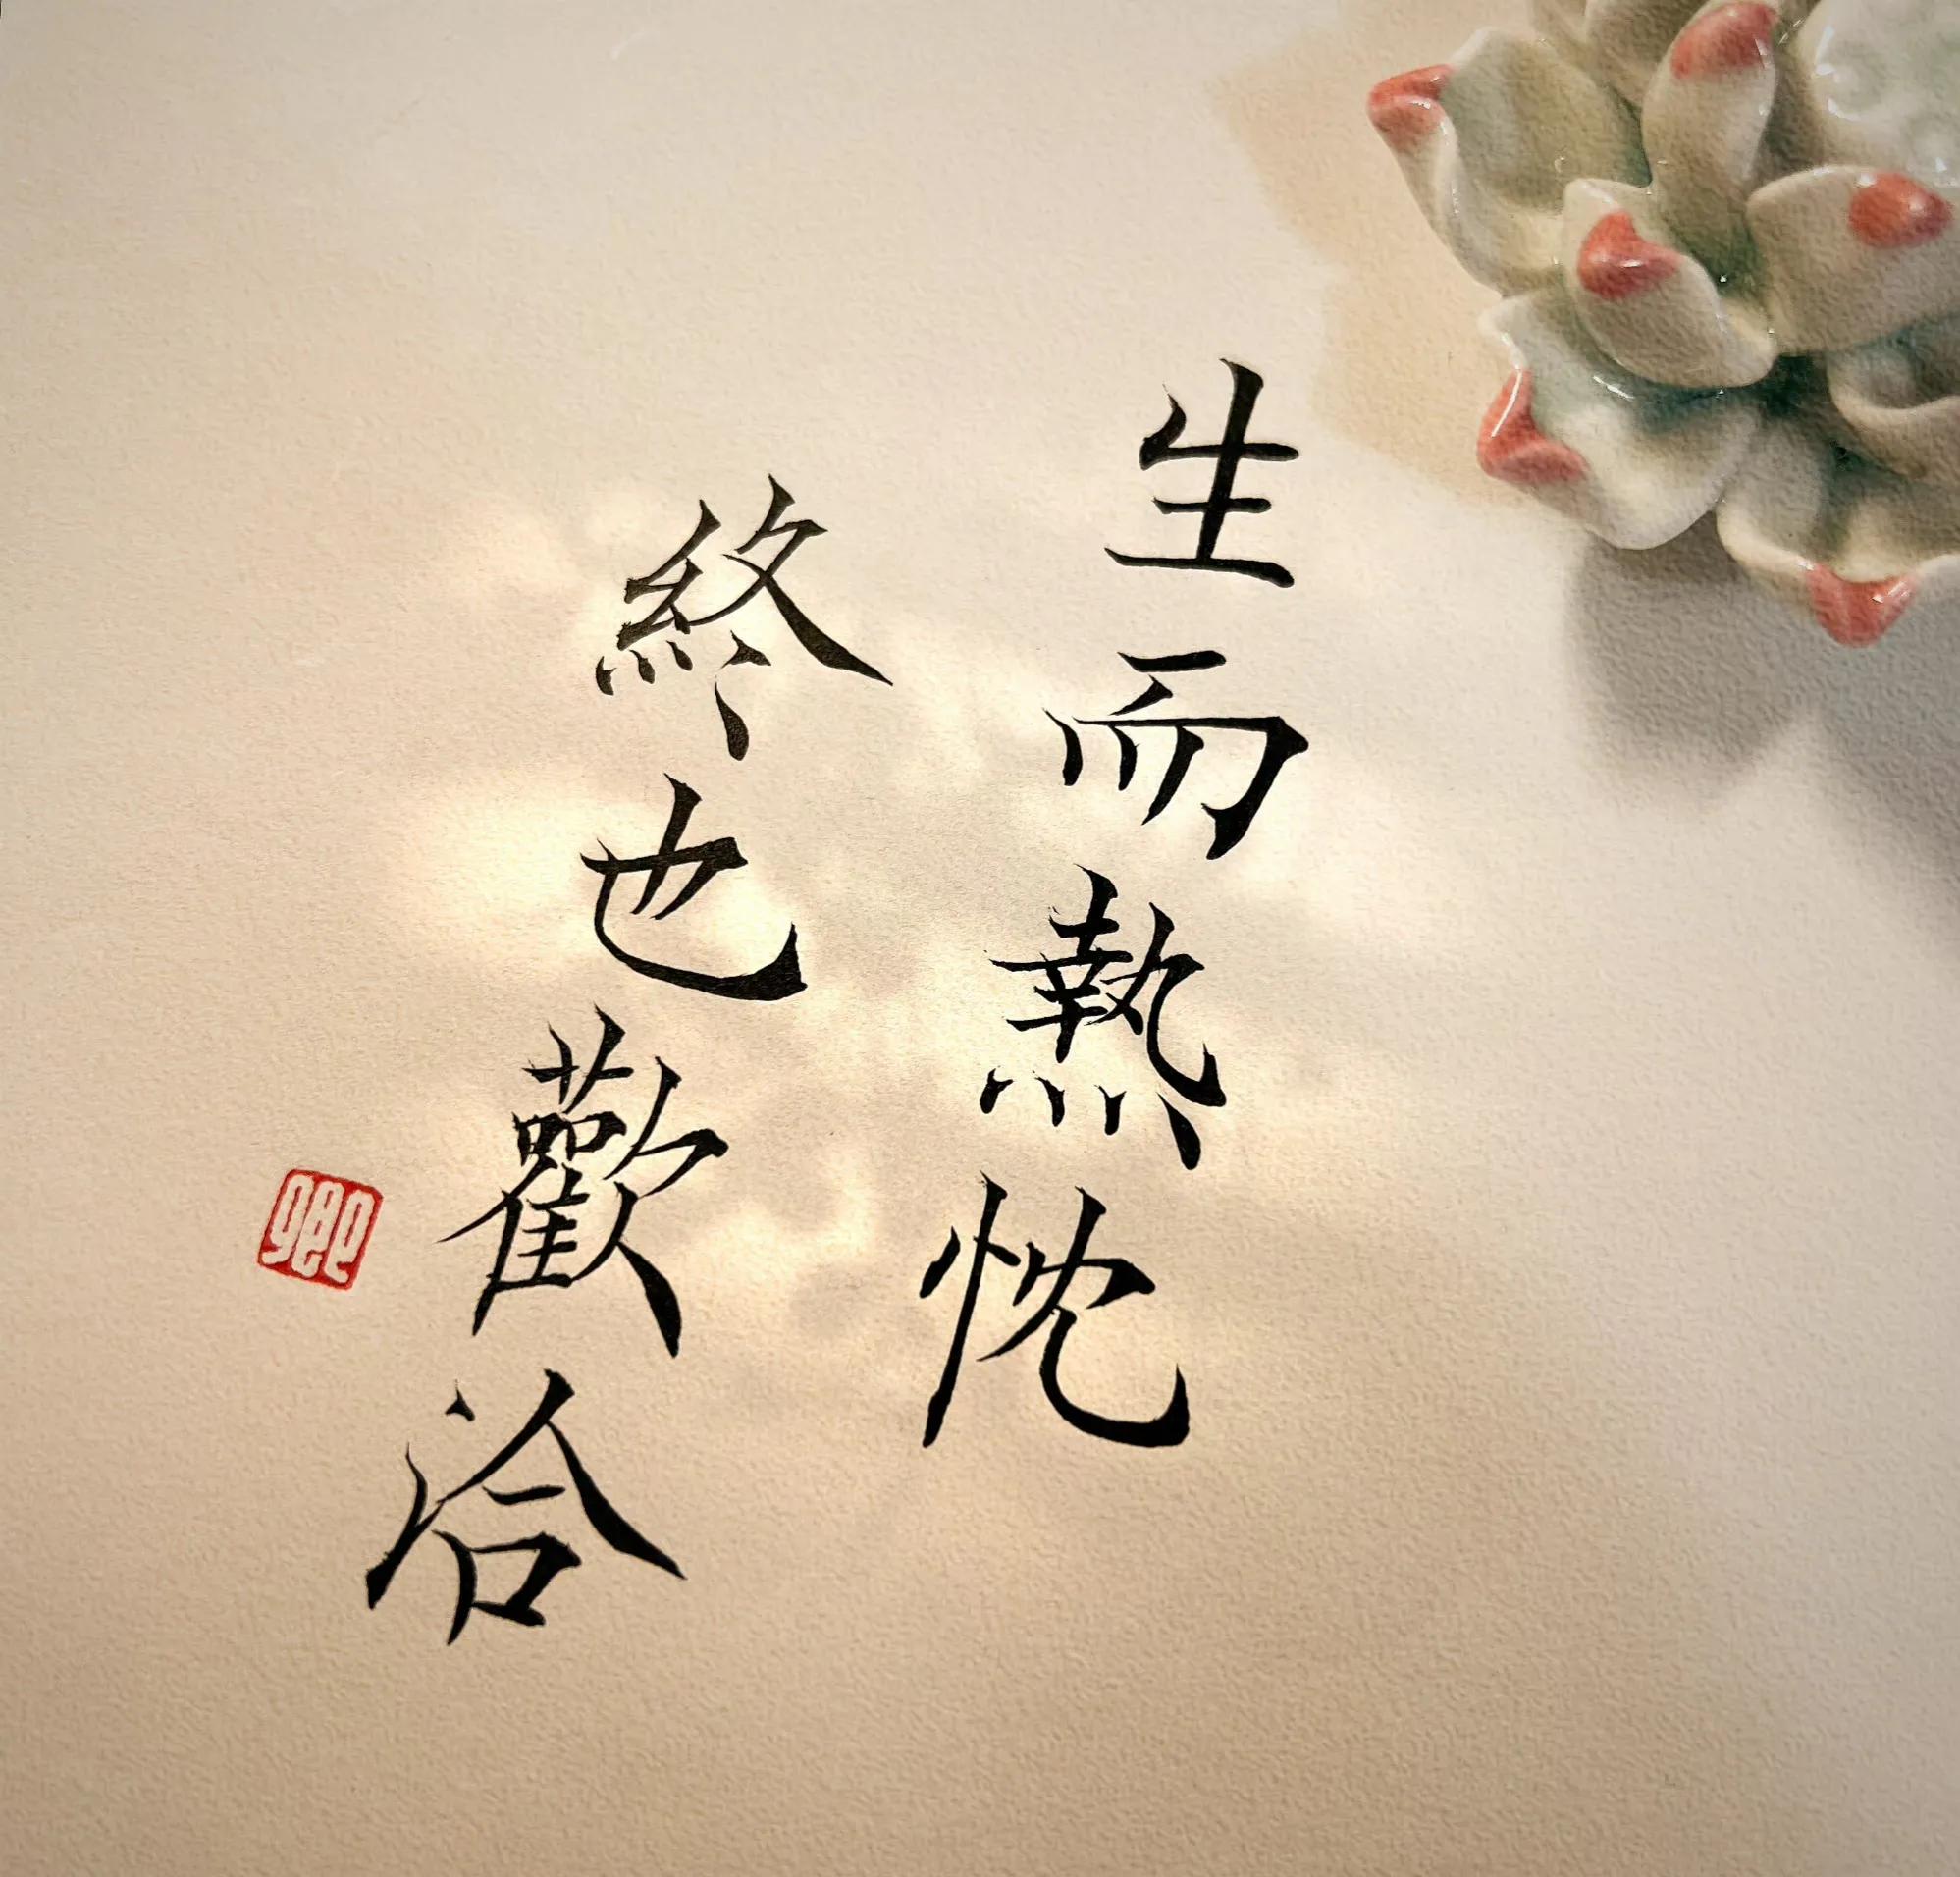 生而熱忱
終也歡洽